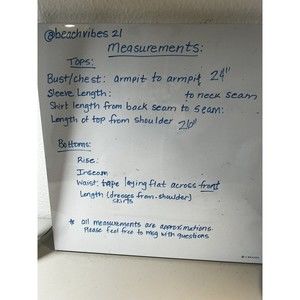 @beachvibes 21
Measurements:
Tops:
Bust/chest: armpit to armpit 24"
Sleeve Length: to neck seam
Shirt length from back seam to seam:
Length of top from shoulder 26"
Bottoms:
Rise:
Inseam
Waist: tape laying flat across front
Length (dresses from shoulder)
skirts
* all measurements are approximations.
Please feel free to msg with questions